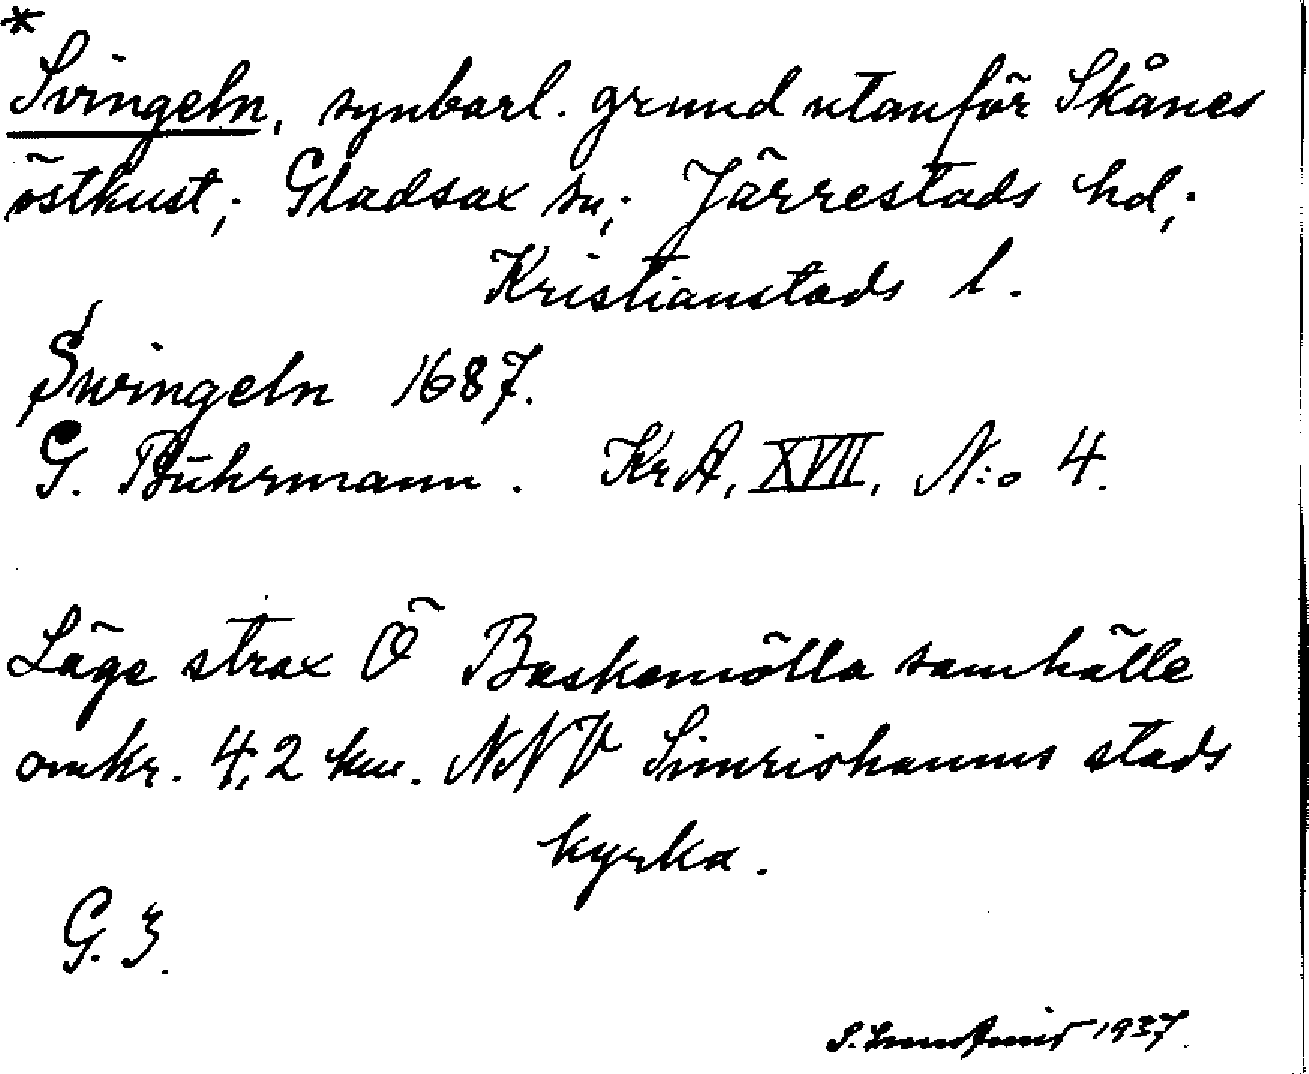 *
Svingeln, synbarl. grund utanför Skånes
östkust,; Gladsax sn,; Järrestads hd,;
Kristianstads l.
Swingeln 1687.
G. Buhrmann. KrA, XVII, N:o 4.
Läge strax Ö Baskemölla samhälle
omkr. 4,2 km. NNV Simrishamns stads
kyrka.
G. 3.
S. 1937.